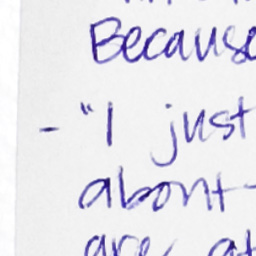 Because
- "I just
about
are at